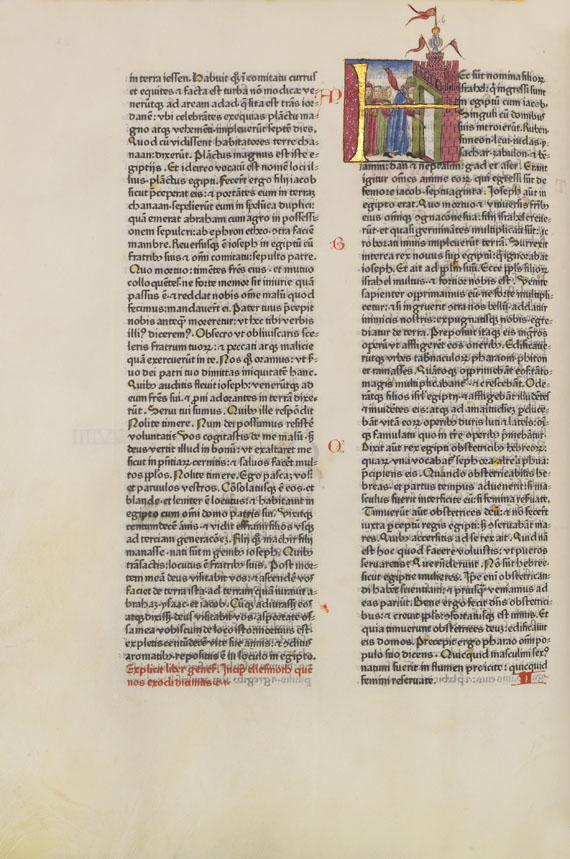 in terra iessen. Habuit q̃ȝ ĩ comitatu currus
et equites: ⁊ facta est turba nõ modica: ve⸗
nerũtqȝ ad aream adad·q̃ sita est trãs ior⸗
danẽ: vbi celebrãtes exequias plãctu ma⸗
gno atqȝ vehemẽti impleuerũt septẽ dies.
Quod cũ vidissent habitatores terre cha⸗
naan: dixerũt. Plãctus magnus est iste e⸗
giptijs. Et idcirco vocatũ est nomẽ loci il⸗
lius·plãctus egipti. Fecerũt ergo filij iacob
sicut p̃ceperat eis: ⁊ portãtes eum in terrã
chanaan·sepelierũt eum in spelũca duplici:
quã emerat abraham cum agro in possessi⸗
onem sepulcri: ab ephron etheo·cõtra faciẽ
mambre. Reuersusqȝ ẽ ioseph in egiptũ cũ
fratribȝ suis ⁊ om̃i comitatu: sepulto patre.
Quo mortuo: timẽtes frẽs eius·et mutuo
colloquẽtes: ne forte memor sit iniurie quã
passus ẽ·⁊ reddat nobis om̃e malũ quod
fecimus: mandauerũt ei. Pater tuus p̃cepit
nobis anteqȝ moreretur: vt hec tibi verbis
illi⁹ dicerem⁹. Obsecro vt obliuiscaris sce⸗
leris fratrum tuorȝ: ⁊ peccati atqȝ malicie
quã exercuerũt in te. Nos q̃ȝ oramus: vt s̃⸗
uo dei patri tuo dimittas iniquitatẽ hanc.
Quibȝ auditis fleuit ioseph: venerũtqȝ ad
eum frẽs sui·⁊ p̃ni adorantes in terrã dixe⸗
rũt. Serui tui sumus. Quibȝ ille respõdit
Nolite timere. Num dei possumus resistẽ
voluntati? Vos cogitastis de me malũ·sȝ
deus vertit illud in bonũ: vt exaltaret me
sicut in p̃ntiarȝ cernitis: ⁊ saluos facẽt mul⸗
tos p̃plos. Nolite timere. Ego pascã vos·
et paruulos vestros. Cõsolatusqȝ ẽ eos·et
blande·et leniter ẽ locutus: ⁊ habitauit in
egipto cum om̃i domo patris sui. Vixitqȝ
centumdecẽ annis·⁊ vidit effraim filios vsqȝ
ad terciam generacõeȝ. Filij q̃ȝ machir filij
manasse·nati sũt in genibȝ ioseph. Quibȝ
trãsactis: locutus ẽ fratribȝ suis. Post mor⸗
tem meã deus visitabit vos: ⁊ ascendẽ vos
faciet de terra ista·ad terram quã iurauit a⸗
brahaȝ·ysaac·et iacob. Cũqȝ adiurasset eos
atqȝ dixisset·deus visitabit vos: asportate os⸗
sa mea vobiscum de loco isto: mortuus est·
expletis centũdecẽ vite sue annis: ⁊ cõditus
aromatibȝ·repositus ẽ in loculo in egipto.
Explicit liber geneſ. Incip̃ ellesmoth quẽ
nos exodũ dicimus
Ec sũt nomina filiorȝ
israhel·qui ingressi sunt
in egiptũ cum iacob.
Singuli cũ domibus
suis introierũt. Ruben·
simeon·leui·iudas·y⸗
sachar·zabulon·⁊ bẽ⸗
iamin: dan ⁊ neptalim: gad et aser. Erant
igitur om̃es anime eorȝ·qui egressi sunt de
femore iacob·septuaginta. Ioseph aũt in
egipto erat. Quo mortuo ⁊ vniuersis fribȝ
eius·om̃iqȝ cognacõne sua: filij israhel creue⸗
rũt·et quasi germinãtes multiplicati sũt: ac
roborati nimis impleuerũt terrã. Surrexit
interea rex nouus sup egiptũ: qui ignorabat
ioseph. Et ait ad p̃plm suũ. Ecce p̃pls filiorȝ
israhel multus·⁊ fortior nobis est. Venite
sapienter opprimamus eũ: ne forte multipli⸗
cetur: ⁊ si ingruerit cõtra nos bellũ: addatur
inimicis nostris: expugnatisqȝ nobis egre⸗
diatur de terra. Preposuit itaqȝ eis mg̃ros
operũ: vt affligeret eos oneribȝ. Edificaue⸗
rũtqȝ vrbes tabnaculorȝ pharaoni·phiton
et ramasses. Quãtoqȝ opprimebãt eos: tãto
magis multiplicabant·⁊ crescebãt. Ode⸗
rãtqȝ filios isrl̃ egiptij: ⁊ affligebãt illudẽtes
⁊ inuidẽtes eis: atqȝ ad amaritudiẽȝ p̃duce⸗
bãt vitã eorȝ operibȝ duris luti ⁊ lateris: oĩ⸗
qȝ famulatu quo in tre operibȝ p̃mebãtur.
Dixit aũt rex egipti obstetricibȝ hebreorȝ:
quarȝ vna vocabat̃ sephora·altera phua:
p̃cipiens eis. Quando obstetricabitis he⸗
breas·et partus tempus aduenerit: si ma⸗
sculus fuerit interficite eũ: si femina reseruate.
Timuerũt aũt obstetrices deũ: ⁊ nõ fecerũt
iuxta preceptũ regis egipti: sȝ cõseruabãt ma⸗
res. Quibȝ accersitis ad se rex ait. Quidnã
est hoc quod facere voluistis: vt pueros
seruaretis? Que r̃nderũt. Nõ sũt hebree·
sicut egiptie mulieres. Ip̃e enĩ obstetrican⸗
di habẽt scientiam: ⁊ priusqȝ veniamus ad
eas pariũt. Bene ergo fecit dñs obstetrici⸗
bus: ⁊ creuit p̃pls: cõfortatusqȝ est nimis. Et
quia timuerunt obstetrices deuȝ: edificauit
eis domos. Precepit ergo pharao om̃i po⸗
pulo suo dicens. Quicquid masculini sex⁹
natum fuerit in flumen proicite: quicquid
feminini reseruate.